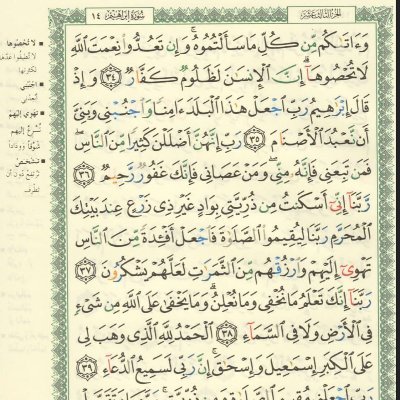 الجزء الثالث عشر
سورة إبراهيم ١٤
وَءَاتَىٰكُم مِّن كُلِّ مَا سَأَلْتُمُوهُ ۚ وَإِن تَعُدُّوا۟ نِعْمَتَ ٱللَّهِ
لَا تُحْصُوهَآ ۗ إِنَّ ٱلْإِنسَـٰنَ لَظَلُومٌ كَفَّارٌ ٣٤ وَإِذْ
قَالَ إِبْرَٰهِيمُ رَبِّ ٱجْعَلْ هَـٰذَا ٱلْبَلَدَ ءَامِنًا وَٱجْنُبْنِى وَبَنِىَّ
أَن نَّعْبُدَ ٱلْأَصْنَامَ ٣٥ رَبِّ إِنَّهُنَّ أَضْلَلْنَ كَثِيرًا مِّنَ ٱلنَّاسِ ۖ
فَمَن تَبِعَنِى فَإِنَّهُۥ مِنِّى ۖ وَمَنْ عَصَانِى فَإِنَّكَ غَفُورٌ رَّحِيمٌ ٣٦
رَّبَّنَآ إِنِّىٓ أَسْكَنتُ مِن ذُرِّيَّتِى بِوَادٍ غَيْرِ ذِى زَرْعٍ عِندَ بَيْتِكَ
ٱلْمُحَرَّمِ رَبَّنَا لِيُقِيمُوا۟ ٱلصَّلَوٰةَ فَٱجْعَلْ أَفْـِٔدَةً مِّنَ ٱلنَّاسِ
تَهْوِىٓ إِلَيْهِمْ وَٱرْزُقْهُم مِّنَ ٱلثَّمَرَٰتِ لَعَلَّهُمْ يَشْكُرُونَ ٣٧
رَبَّنَآ إِنَّكَ تَعْلَمُ مَا نُخْفِى وَمَا نُعْلِنُ ۗ وَمَا يَخْفَىٰ عَلَى ٱللَّهِ مِن شَىْءٍ
فِى ٱلْأَرْضِ وَلَا فِى ٱلسَّمَآءِ ٣٨ ٱلْحَمْدُ لِلَّهِ ٱلَّذِى وَهَبَ لِى
عَلَى ٱلْكِبَرِ إِسْمَـٰعِيلَ وَإِسْحَـٰقَ ۚ إِنَّ رَبِّى لَسَمِيعُ ٱلدُّعَآءِ ٣٩
رَبِّ ٱجْعَلْنِى مُقِيمَ ٱلصَّلَوٰةِ وَمِن ذُرِّيَّتِى ۚ رَبَّنَا وَتَقَبَّلْ
لا تُحصوها
لا تُطيقوا عدّها
لكثرتها
اجنُبني
أبعِدْني
تهوي إليهم
تُسرعُ إليهم
شوقًا وودادًا
تشخص
ترتفعُ دون أن
تطرِف